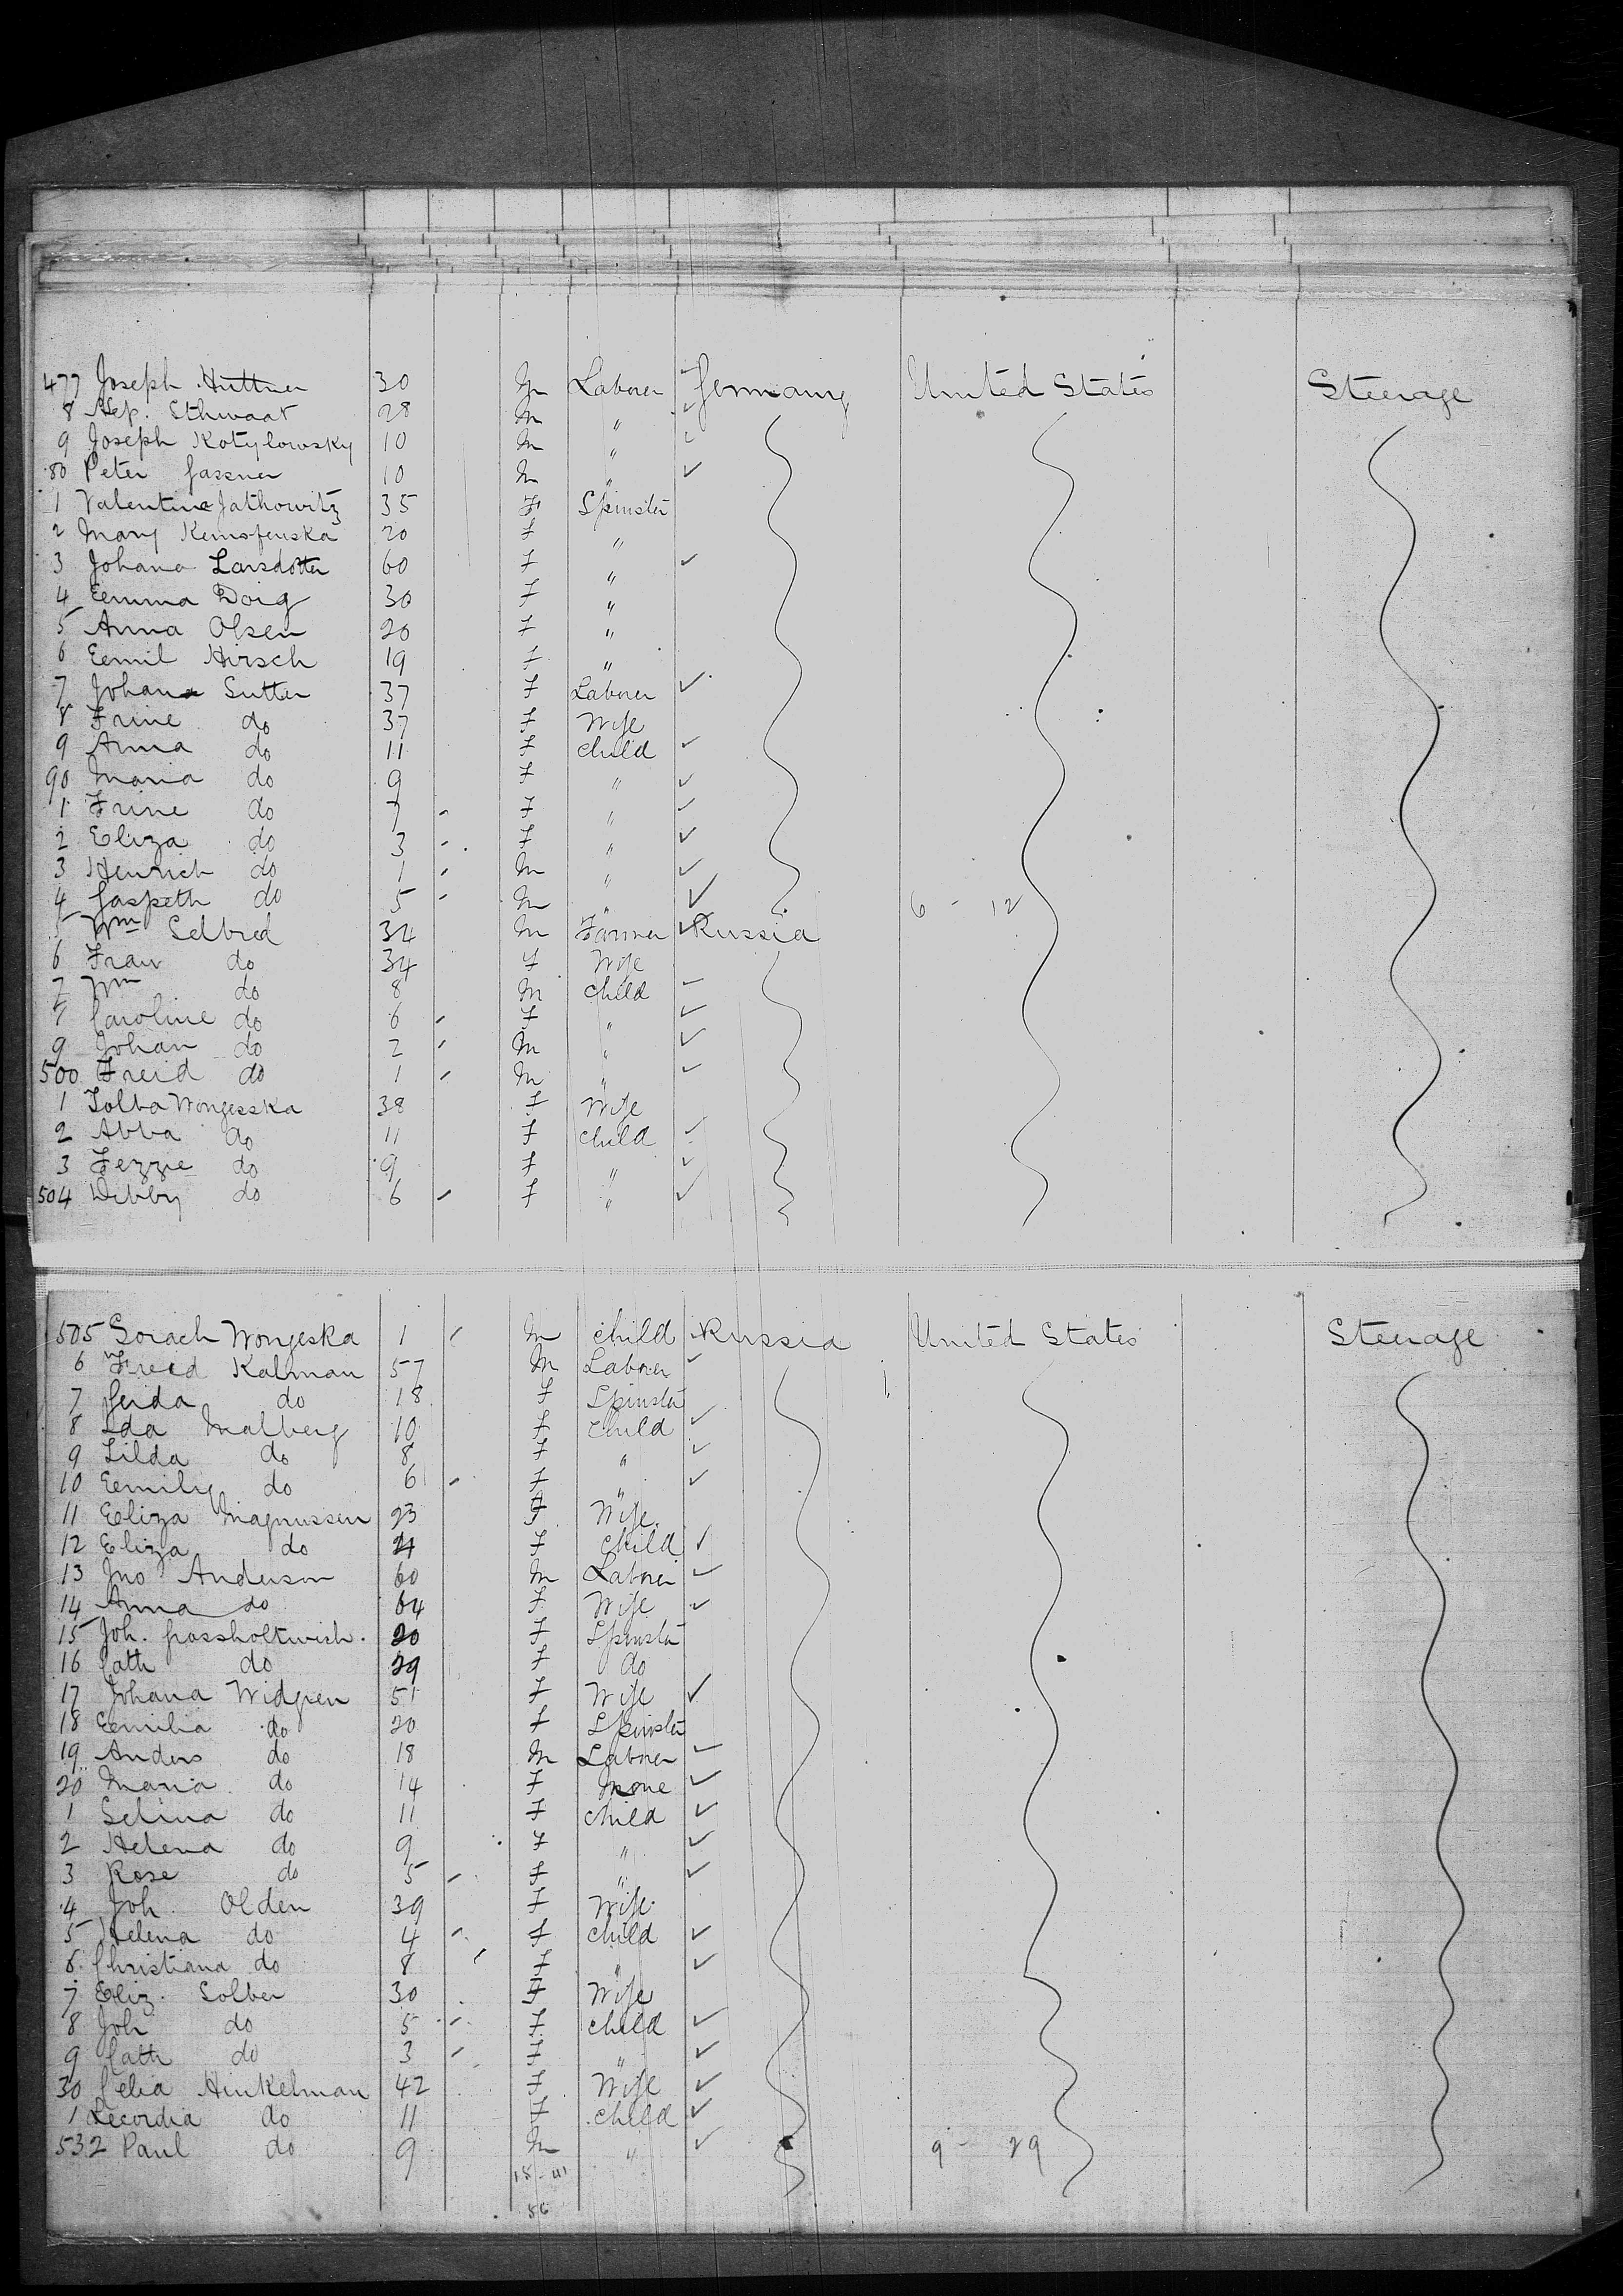 477 Joseph Huttner 30 M Laborer Germany United States Steerage
8 Nep. Sthwaat 28 M "
9 Joseph Kotylowsky 10 M "
80 Peter Gassner 10 M "
1 Valentine Jathowitz 35 F Spinster
2 Mary 20 F "
3 Johana Larsdotter 60 F "
4 Eemma Doig 30 F "
5 Anna Olsen 20 F "
6 Eemil Hirsch 19 F "
7 Johana Sutter 37 F Laborer
8 Frine do 37 F Wife
9 Anna do 11 F child
90 Maria do 9 F "
1 Frine do 7 F "
2 Eliza do 3 F "
3 Henrich do 1 M "
4 Gaspeth do 5 M " 6 - 12
5 Wm Selbred 34 M Farmer Russia
6 Frau do 34 F Wife
7 Wm do 8 M child
7 Caroline do 6 F "
9 Johan do 2 M "
500 Freid do 1 M "
1 Tolba Wongesska 38 F Wife
2 Abba do 11 F child
3 Fezzie do 9 F "
504 Dibby do 6 F "
505 Sorach Wongeska 1 M child Russia United States Steerage
6 Freed Kalman 57 M Laborer
7 Geida do 18 F Spinster
8 Ida Malberg 10 F child
9 Lilda do 8 F "
10 Eemily do 6 F "
11 Eeliza Magnussen 23 F Wife
12 Eliza do F child
13 Jno Anderson 60 M Laborer
14 Anna do 64 F Wife
15 Joh. 20 F Spinster
16 Cath do 29 F do
17 Johana Widgren 51 F Wife
18 Eemilia do 20 F Spinster
19 Anders do 18 M Laborer
20 Maria do 14 F None
1 Selina do 11 F child
2 Helena do 9 F "
3 Rose do 5 F "
4 Joh. Olden 39 F Wife
5 Helena do 4 F child
6 Christiana do 8 F "
7 Eliz. Solber 30 F Wife
8 Joh do 5 F child
9 Cath do 3 F "
30 Celia Hinkelman 42 F Wife
1 Lecordia do 11 F child
532 Paul do 9 M " 9 - 29
18 - 41
56